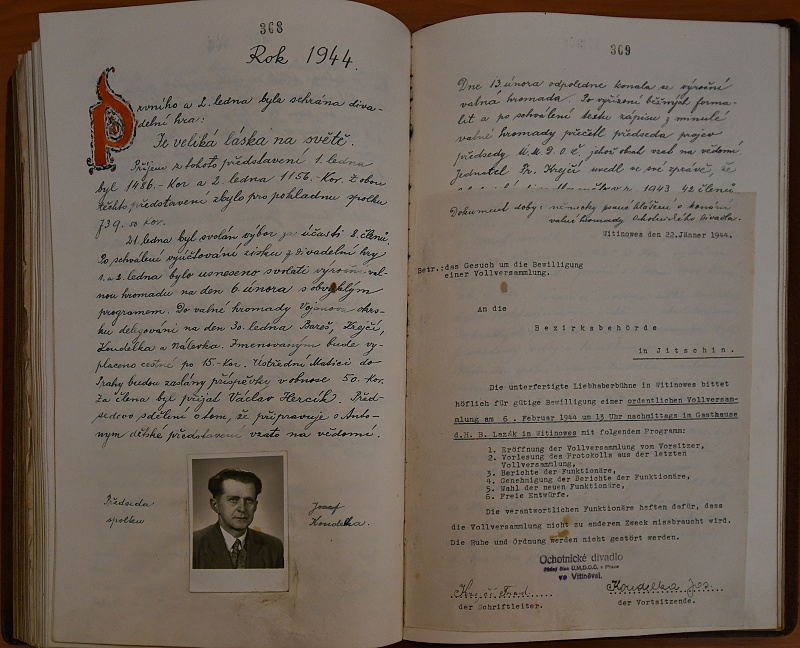 368
Rok 1944.
Prvního a 2. ledna byla sehrána diva-
delní hra:
Je veliká láska na světě.
Příjem z tohoto představení 1. ledna
byl 1486.- Kor a 2. ledna 1156.- Kor. Z obou
těchto představení zbylo pro pokladnu spolku
739.50 Kor.
21. ledna byl svolán výbor za účasti 8. členů.
Po schválení vyúčtování zisku z divadelní hry
1. a 2. ledna bylo usneseno svolati výroční val-
nou hromadu na den 6 února s obvyklým
programem. Do valné hromady Vojanova okrs-
ku delegováni na den 30. ledna Bareš, Krejčí,
Koudelka a Nálevka. Jmenovaným bude vy-
placeno cestné po 15.- Kor. Ústřední Matici do
Prahy budou zaslány příspěvky v obnose 50.- Kor.
Za člena byl přijat Václav Hercík. Před-
sedovo sdělení o tom, že připravuje s Anto-
nym dětské představení vzato na vědomí.
Předseda
spolku
Josef
Koudelka.
369
Dne 13. února odpoledne konala se výroční
valná hromada. Po vyřízení běžných forma-
lit a po schválení textu zápisu z minulé
valné hromady přečetl předseda projev
předsedy Ú.M.D.O.Č. jehož obsah vzat na vědomí.
Jednatel Fr. Krejčí uvedl ve své zprávě, že
v r. 1943 42 členů
Dokument doby: německy psané hlášení o konání
valné hromady Ochotnického divadla.
Witinowes den 22.Jänner 1944.
Betr.: das Gesuch um die Bewilligung
einer Vollversammlung.
An die
Bezirksbehörde
in Jitschin.
Die unterfertigte Liebhaberbühne in Witinowes bittet
höflich für gütige Bewilligung einer ordentlichen Vollversam-
mlung am 6. Februar 1944 um 13 Uhr nachmittags im Gasthause
d.H. B. Lazák in Witinowes mit folgendem Programm:
1. Eröffnung der Vollversammlung vom Vorsitzer,
2. Vorlesung des Protokolls aus der letzten
Vollversammlung,
3. Berichte der Funktionäre,
4. Genehmigung der Berichte der Funktionäre,
5. Wahl der neuen Funktionäre,
6. Freie Entwürfe.
Die verantworlichen Funktionäre haften dafür, dass
die Vollversammlung nicht zu anderem Zweck missbraucht wird.
Die Ruhe und Ordnung werden nicht gestört werden.
Ochotnické divadlo
řádný člen Ú.M.D.O.Č. v Praze
ve Vitiněvsi.
Koudelka Jos.
der Schriftleiter.
der Vortsitzende.